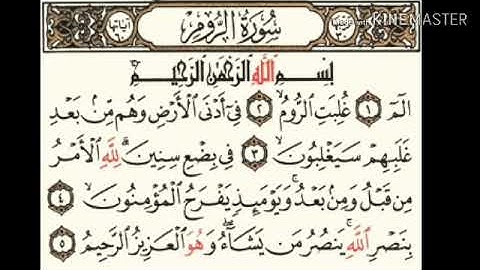 Made with KINEMASTER
سُورَةُ الرُّومِ
بِسْمِ ٱللَّهِ ٱلرَّحْمَٰنِ ٱلرَّحِيمِ
الٓمٓ ١ غُلِبَتِ ٱلرُّومُ ٢ فِىٓ أَدْنَى ٱلْأَرْضِ وَهُم مِّنۢ بَعْدِ
غَلَبِهِمْ سَيَغْلِبُونَ ٣ فِى بِضْعِ سِنِينَ ۗ لِلَّهِ ٱلْأَمْرُ
مِن قَبْلُ وَمِنۢ بَعْدُ ۚ وَيَوْمَئِذٍ يَفْرَحُ ٱلْمُؤْمِنُونَ ٤
بِنَصْرِ ٱللَّهِ ۚ يَنصُرُ مَن يَشَآءُ ۖ وَهُوَ ٱلْعَزِيزُ ٱلرَّحِيمُ ٥